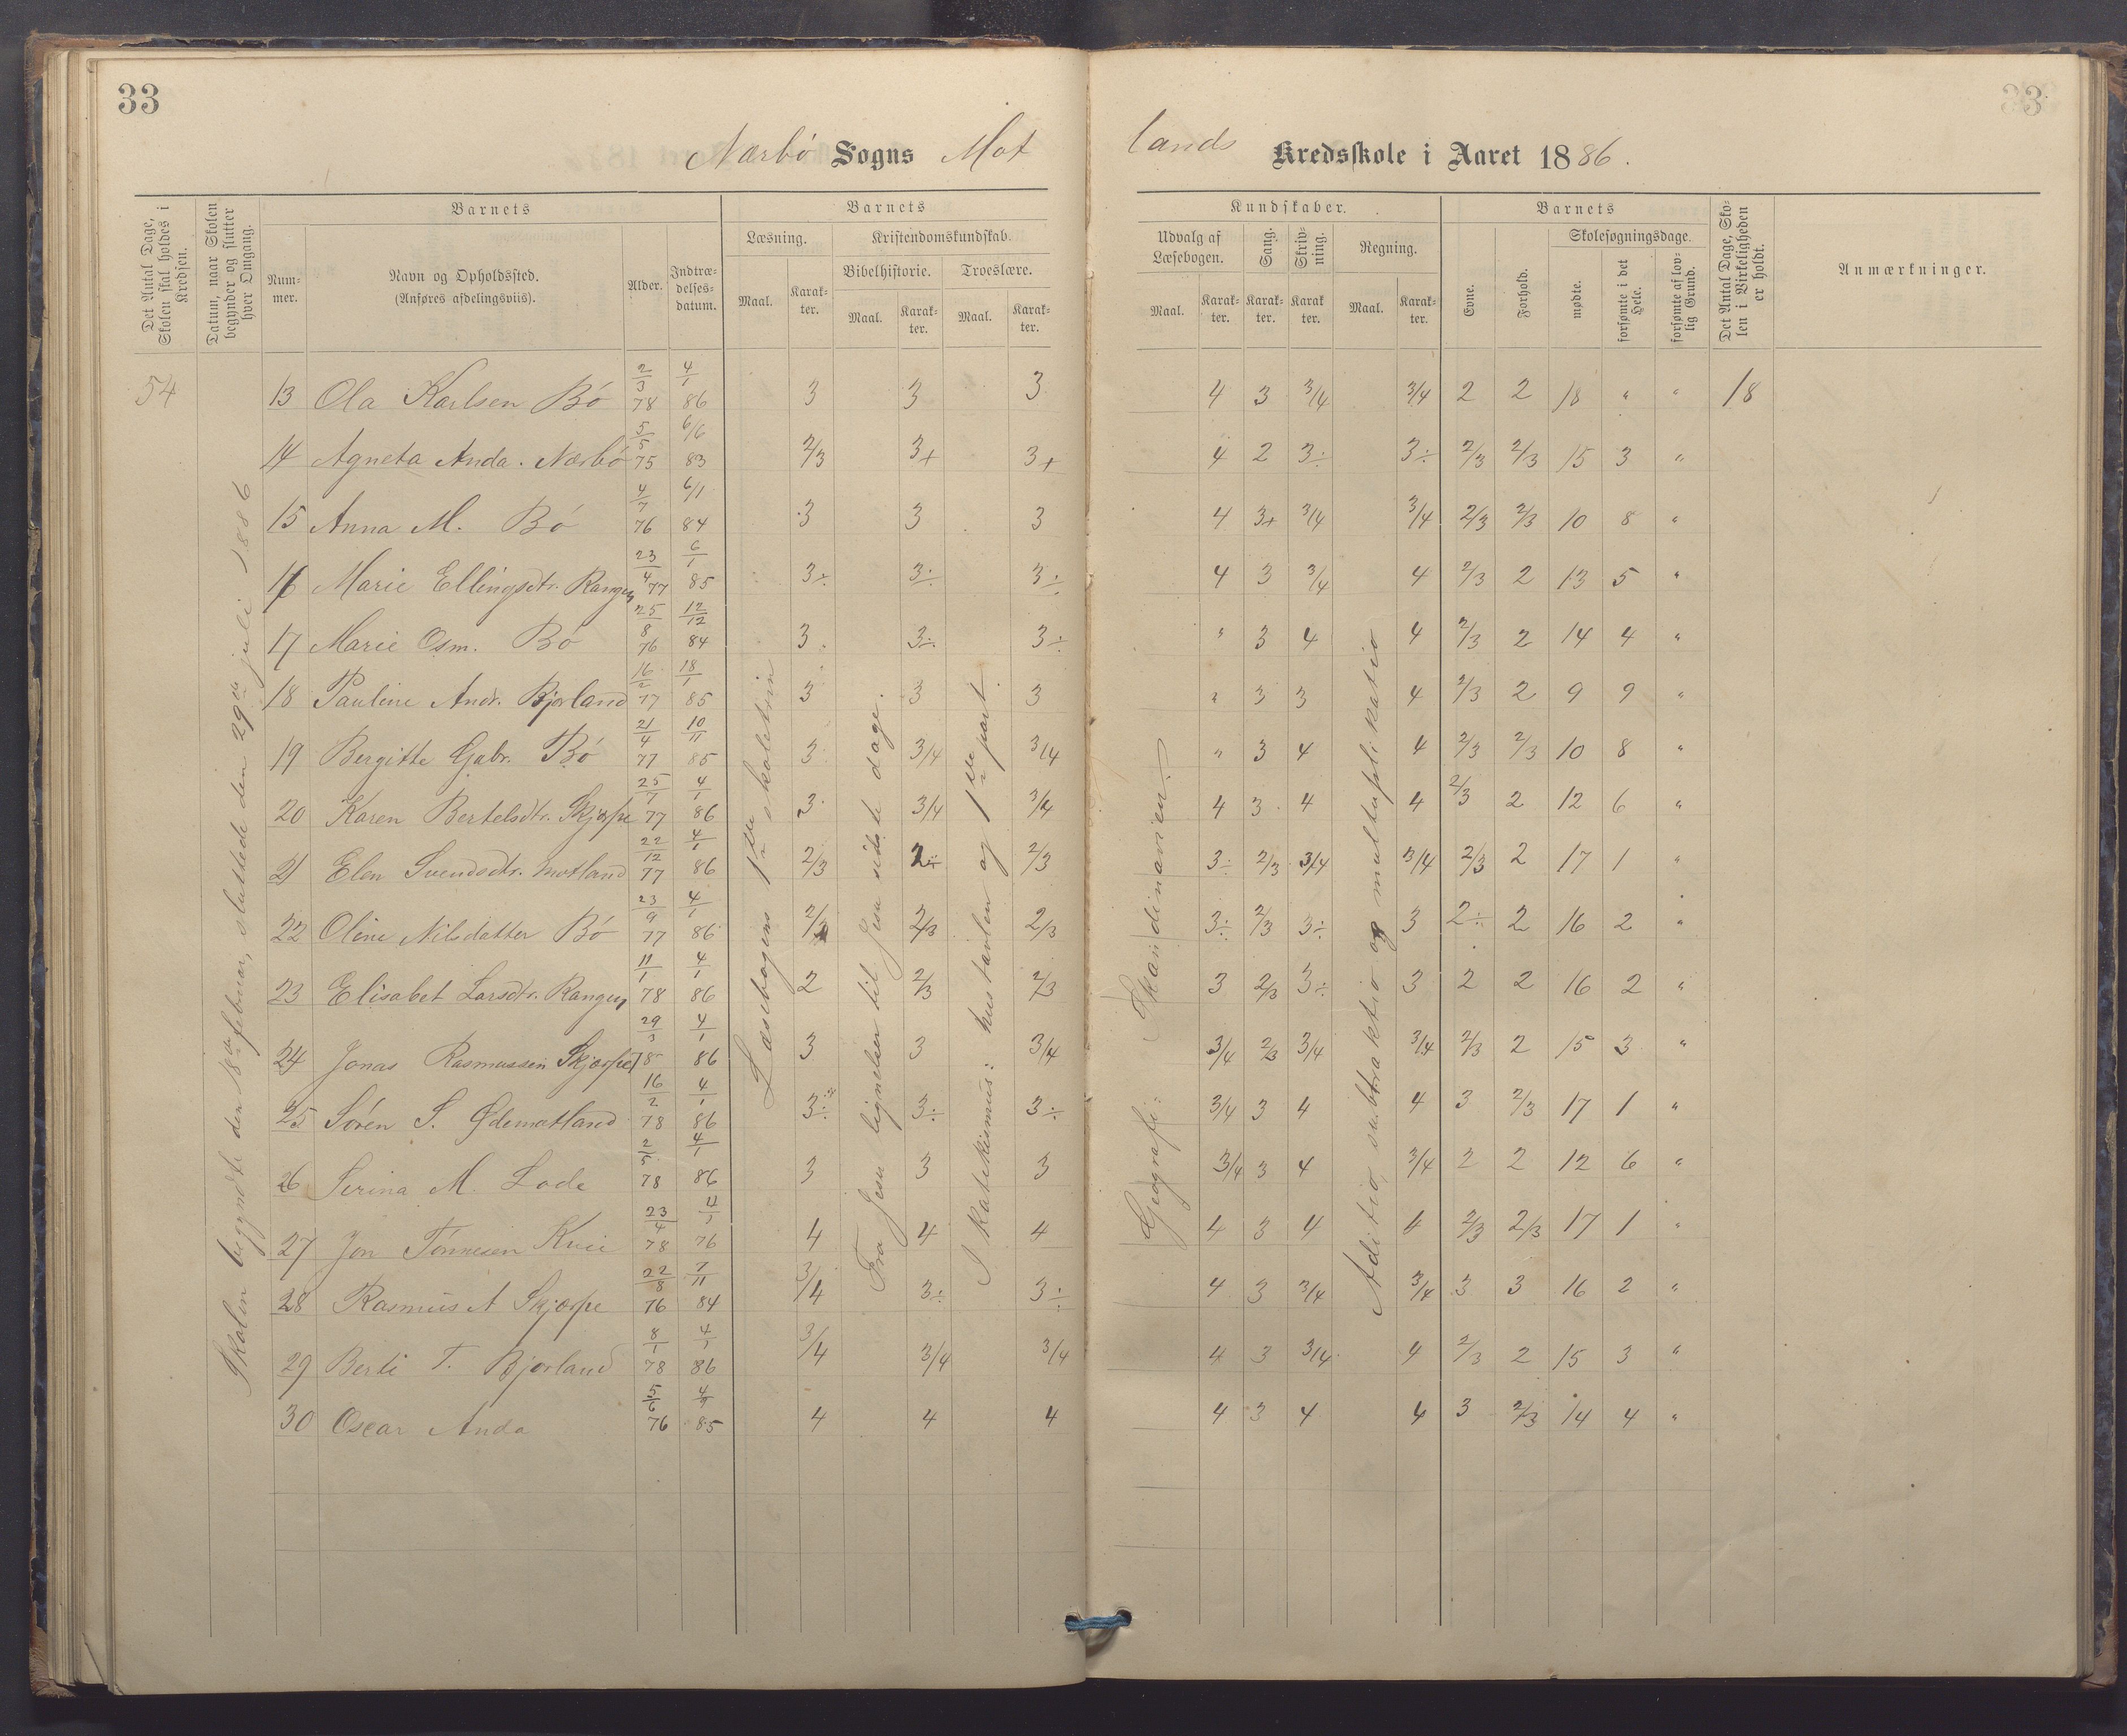 33
33
Nærbø Sogns Mot
lands Kredsskole i Aaret 1886.
Det Antal Dage, Skolen skal holdes i Kredsen.
Datum, naar Skolen begynder og slutter hver Omgang.
Barnets
Nummer.
Navn og Opholdssted. (Anføres afdelingsviis).
Alder.
Indtrædelsesdatum.
Barnets
Læsning.
Maal.
Karakter.
Kristendomskundskab.
Bibelhistorie.
Maal.
Karakter.
Troeslære.
Maal.
Karakter.
Kundskaber.
Udvalg af Læsebogen.
Maal.
Karakter.
Sang.
Karakter.
Skrivning.
Karakter.
Regning.
Maal.
Karakter.
Barnets
Evne.
Forhold.
Skolesøgningsdage.
mødte.
forsømte i det Hele.
forsømte af lovlig Grund.
Det Antal Dage, Skolen i Virkeligheden er holdt.
Anmærkninger.
54
Skolen begyndte den 18de februar, sluttede den 29de juli 1886
Læsebogens 1ste skoletrin
Fra Jesu lignelser til Jesu sidste dage.
I katekismus: hustavlen og 1ste part.
Geografi: Skandinavien.
Aditio, subtraktio og multaplikatio
13 Ola Karlsen Bø 2/3 78 4/1 86 3 3 3 4 3 3/4 3/4 2 2 18 " " 18
14 Agneta Anda. Nærbø 5/5 75 6/6 83 2/3 3+ 3+ 4 2 3÷ 3÷ 2/3 2/3 15 3 "
15 Anna M. Bø 4/7 76 6/1 84 3 3 3 4 3+ 3/4 3/4 2/3 2/3 10 8 "
16 Marie Ellingsdtr. Rangen 23/4 77 6/1 85 3÷ 3÷ 3÷ 4 3 3/4 4 2/3 2 13 5 "
17 Marie Osm. Bø 25/8 76 12/12 84 3 3÷ 3÷ " 3 4 4 2/3 2 14 4 "
18 Pauline Andr. Bjorland 16/2 77 18/1 85 3 3 3 " 3 3 4 2/3 2 9 9 "
19 Bergitte Gabr. Bø 21/4 77 10/11 85 3 3/4 3/4 " 3 4 4 2/3 2/3 10 8 "
20 Karen Bertelsdtr. Skjærpe 25/7 77 4/1 86 3 3/4 3/4 4 3 4 4 2/3 2 12 6 "
21 Elen Svendsdtr. Motland 22/12 77 4/1 86 2/3 2÷ 2/3 3÷ 2/3 3/4 3/4 2/3 2 17 1 "
22 Oline Nilsdatter Bø 23/9 77 4/1 86 2/3 2/3 2/3 3÷ 2/3 3÷ 3 2÷ 2 16 2 "
23 Elisabet Larsdtr. Rangen 11/1 78 4/1 86 2 2/3 2/3 3 2/3 3÷ 3 2 2 16 2 "
24 Jonas Rasmussen Skjærpe 29/3 78 4/1 86 3 3 3/4 3/4 2/3 3/4 3/4 2/3 2 15 3 "
25 Søren S. Ødemotland 16/2 78 4/1 86 3÷ 3÷ 3÷ 3/4 3 4 4 3 2/3 17 1 "
26 Serina M. Lode 2/5 78 4/1 86 3 3 3 3/4 3 4 3/4 2 2 12 6 "
27 Jon Tønnesen Kvie 23/4 78 4/1 76 4 4 4 4 3 4 4 2/3 2/3 17 1 "
28 Rasmus A Skjærpe 22/8 76 7/11 84 3/4 3÷ 3÷ 4 3 3/4 3/4 3 3 16 2 "
29 Berti T. Bjorland 8/1 78 4/1 86 3/4 3/4 3/4 4 3 3/4 4 2/3 2 15 3 "
30 Oscar Anda 5/6 76 85 4 4 4 4 3 4 4 3 2/3 14 4 "